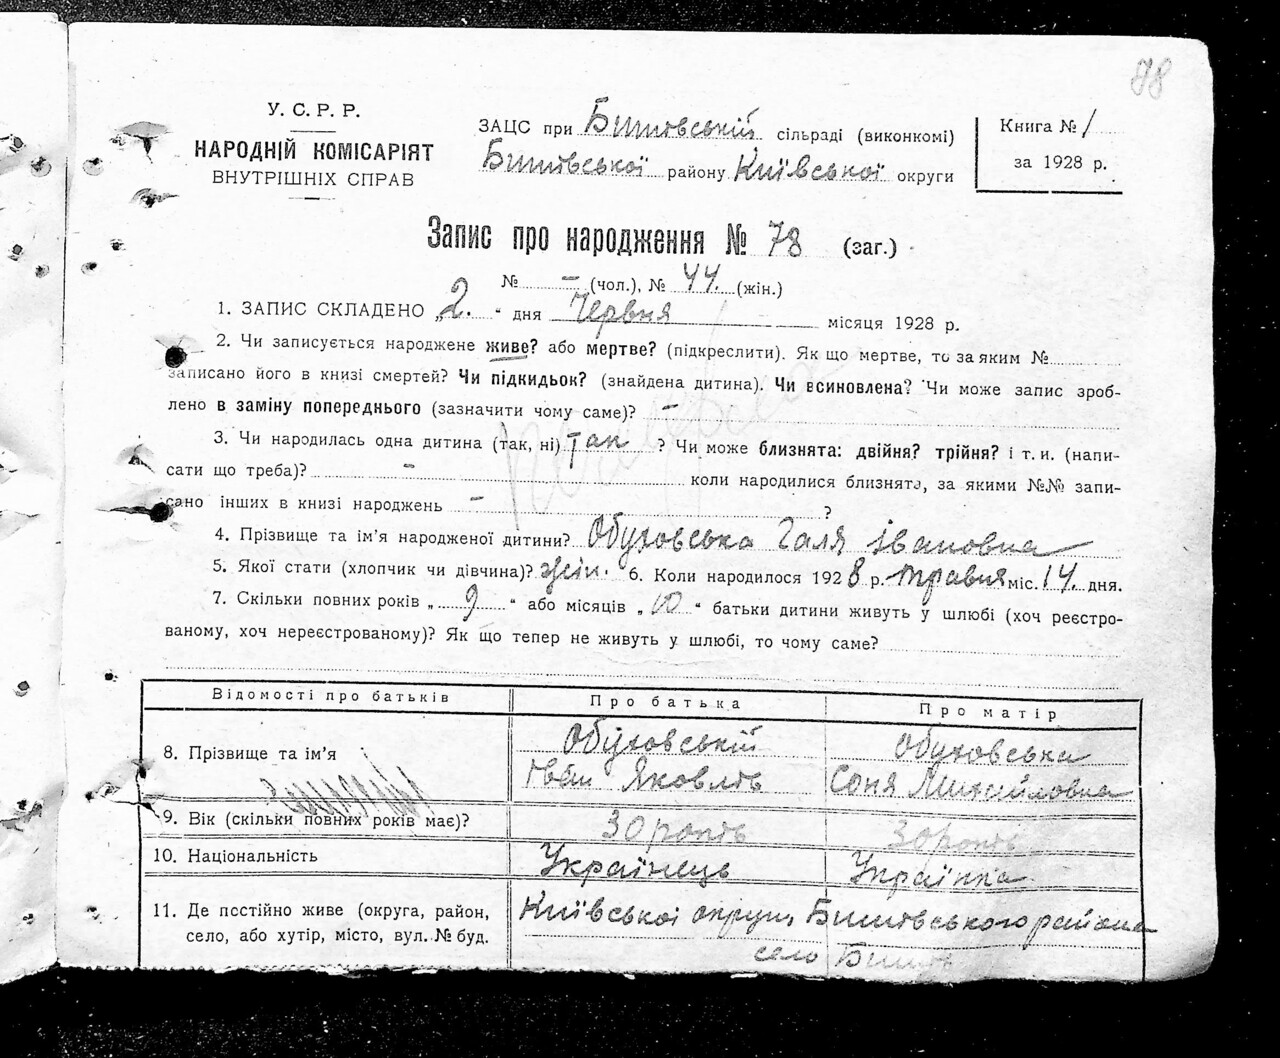 78
У. С. Р. Р.
НАРОДНІЙ КОМІСАРІЯТ
ВНУТРІШНІХ СПРАВ
ЗАЦС при Бишівській сільраді (виконкомі)
Бишівської району Київської округи
Книга № 1
за 1928 р.
Запис про народження № 78 (заг.)
№ — (чол.), № 44. (жін.)
1. ЗАПИС СКЛАДЕНО „2.“ дня Червня місяця 1928 р.
2. Чи записується народжене живе? або мертве? (підкреслити). Як що мертве, то за яким №
записано його в книзі смертей? Чи підкидьок? (знайдена дитина). Чи всиновлена? Чи може запис зроб-
лено в заміну попереднього (зазначити чому саме)? —
3. Чи народилась одна дитина (так, ні) так ? Чи може близнята: двійня? трійня? і т. и. (напи-
сати що треба)? — коли народилися близнята, за якими №№ запи-
сано інших в книзі народжень — ?
4. Прізвище та ім'я народженої дитини? Обуховська Галя Івановна
5. Якої стати (хлопчик чи дівчина)? жін. 6. Коли народилося 1928 р. травня міс. 14. дня.
7. Скільки повних років „ 9 “ або місяців „ 10 “ батьки дитини живуть у шлюбі (хоч реєстро-
ваному, хоч нереєстрованому)? Як що тепер не живуть у шлюбі, то чому саме?
Відомості про батьків Про батька Про матір
8. Прізвище та ім'я Обуховській Обуховська
Іван Яковлів Соня Михайловна
9. Вік (скільки повних років має)? 30 років 30 років
10. Національність Українець Українка
11. Де постійно живе (округа, район, Київської округи, Бишівського района
село, або хутір, місто, вул. № буд. село Бишів